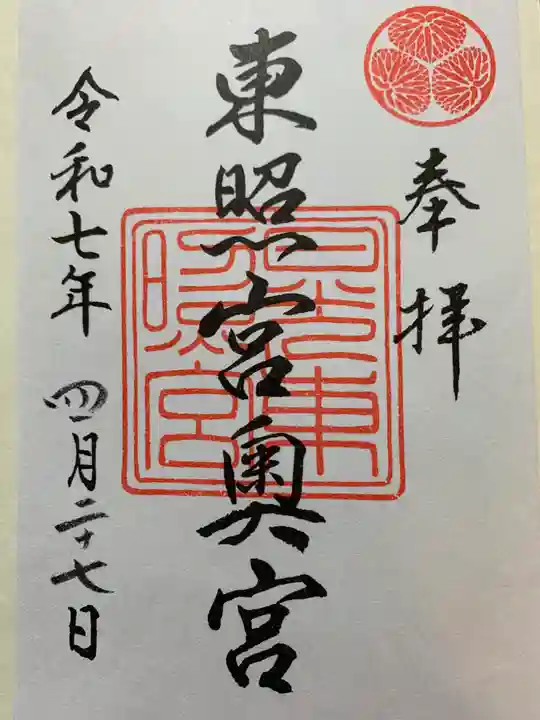 奉拝
東照宮奥宮
日光東照宮
令和七年 四月二十七日